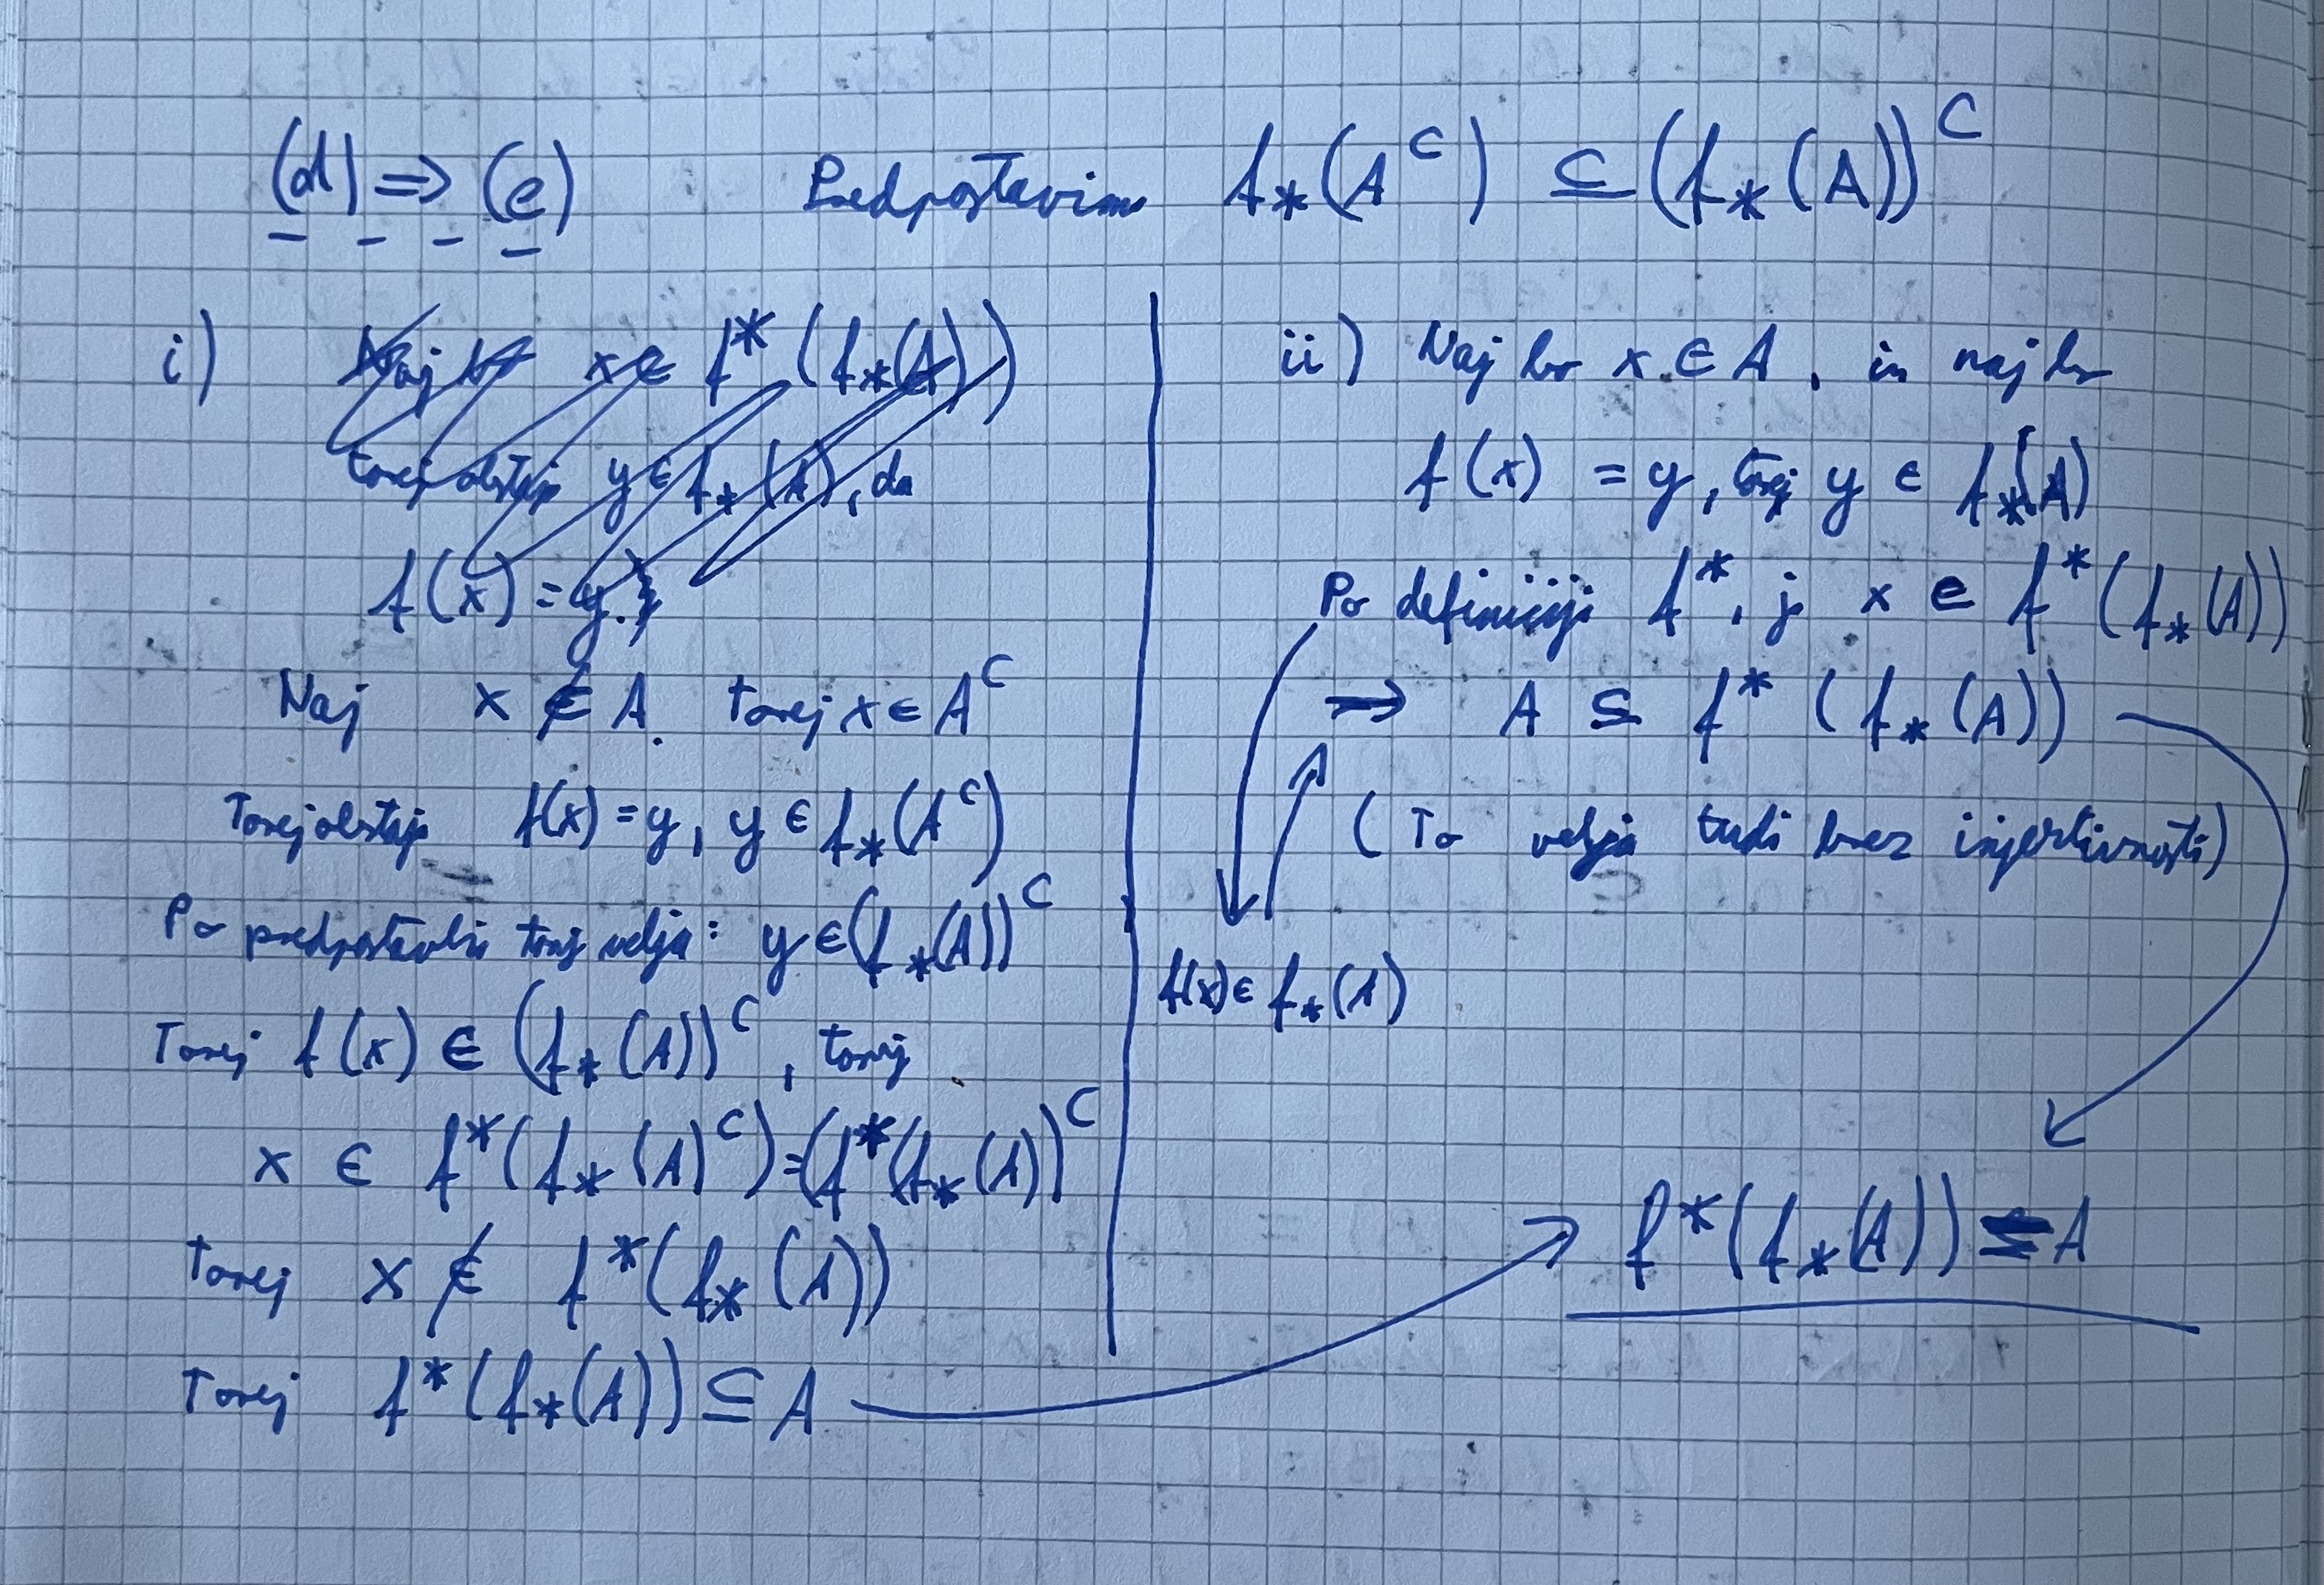 (d) => (e) Predpostavimo f_*(A^C) ⊆ (f_*(A))^C
i) Naj bo x ∈ f^*(f_*(A))
torej obstaja y ∈ f_*(A), da
f(x) = y.
Naj x ∉ A. torej x ∈ A^C
Torej obstaja f(x) = y, y ∈ f_*(A^C)
Po predpostavki torej velja: y ∈ (f_*(A))^C
Torej f(x) ∈ (f_*(A))^C, torej
x ∈ f^*(f_*(A)^C) = (f^*(f_*(A))^C
torej x ∉ f^*(f_*(A))
Torej f^*(f_*(A)) ⊆ A
ii) Naj bo x ∈ A, in naj bo
f(x) = y, torej y ∈ f_*(A)
Po definiciji f^*, je x ∈ f^*(f_*(A))
=> A ⊆ f^*(f_*(A))
(To velja tudi brez injektivnosti)
f(x) ∈ f_*(A)
f^*(f_*(A)) = A